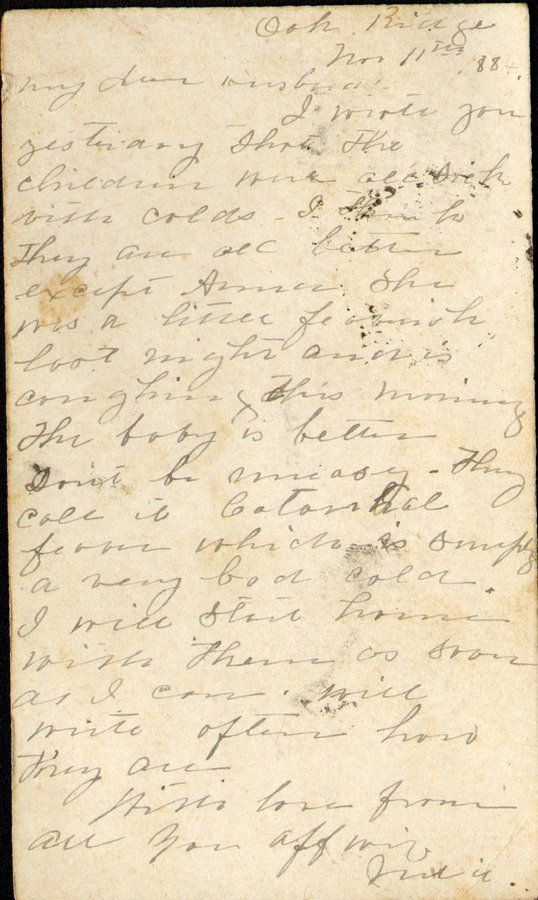 Oak Ridge
Nov 11th 1884.
My dear husband.
I wrote you
yesterday that the
children were all sick
with colds - I think
they are all better
except Anna. She
was a little feverish
last night and is
coughing this morning
The baby is better
Don't be uneasy - They
call it Catarrhal
fever which is simply
a very bad cold.
I will start home
with them as soon
as I can. will
write often how
they are
With love from
all your aff wife
India